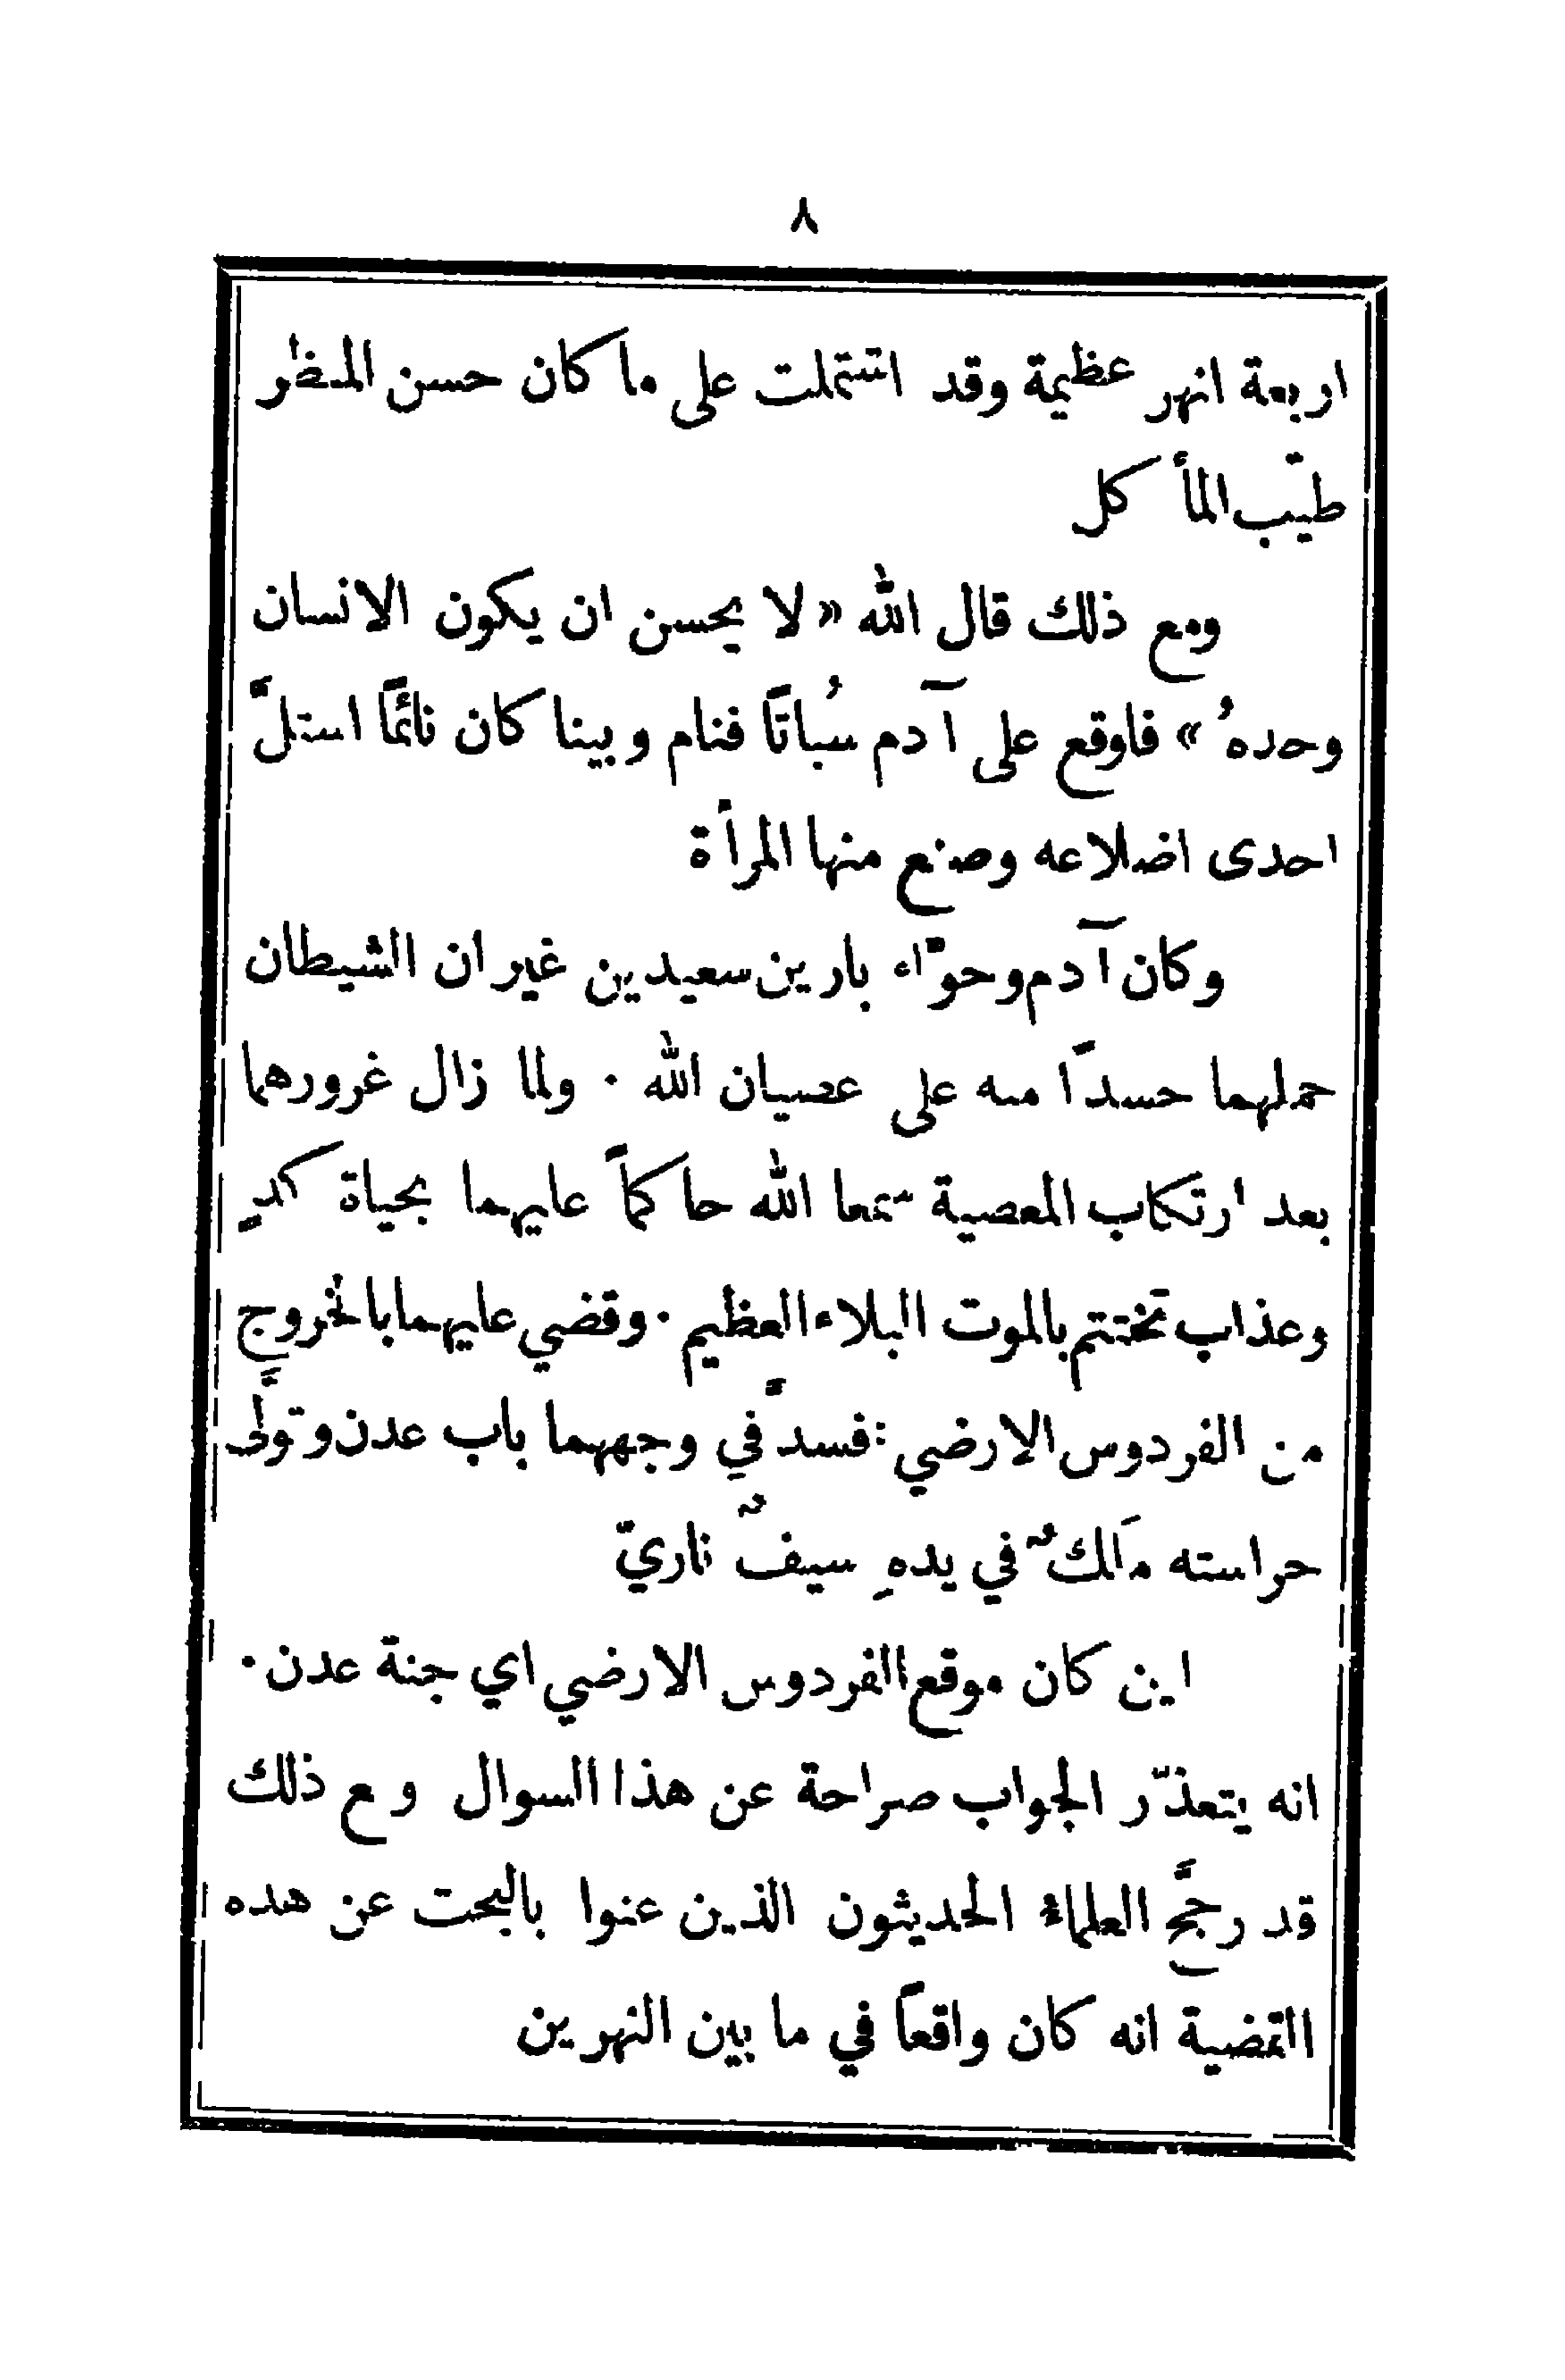 ٨
اربعة انهر عظيمة وقد اشتملت على ما كان حسن المنظر
طيّب المأكل
ومع ذلك قال الله «لا يحسن ان يكون الانسان
وحدهُ» فاوقع على آدم سُباتًا فنام وبينا كان نائمًا استلَّ
احدى اضلاعه وصنع منها المرأة
وكان آدم وحوّاء بارين سعيدين غير ان الشيطان
حملهما حسدًا منه على عصيان الله . ولما زال غرورهما
بعد ارتكاب المعصية سمعا الله حاكمًا عليهما بحياة كدٍ
وعذاب تختتم بالموت البلاء العظيم . وقضي عليهما بالخروج
من الفردوس الارضي : فسدَّ في وجههما باب عدن وتولَّى
حراسته مَلكٌ في يدهِ سيفٌ ناريّ
اين كان موقع الفردوس الارضي اي جنة عدن .
انه يتعذّر الجواب صراحة عن هذا السوال ومع ذلك
قد رجَّح العلماءُ الحديثون الذين عنوا بالبحث عن هذه
القضية انه كان واقعًا في ما بين النهرين